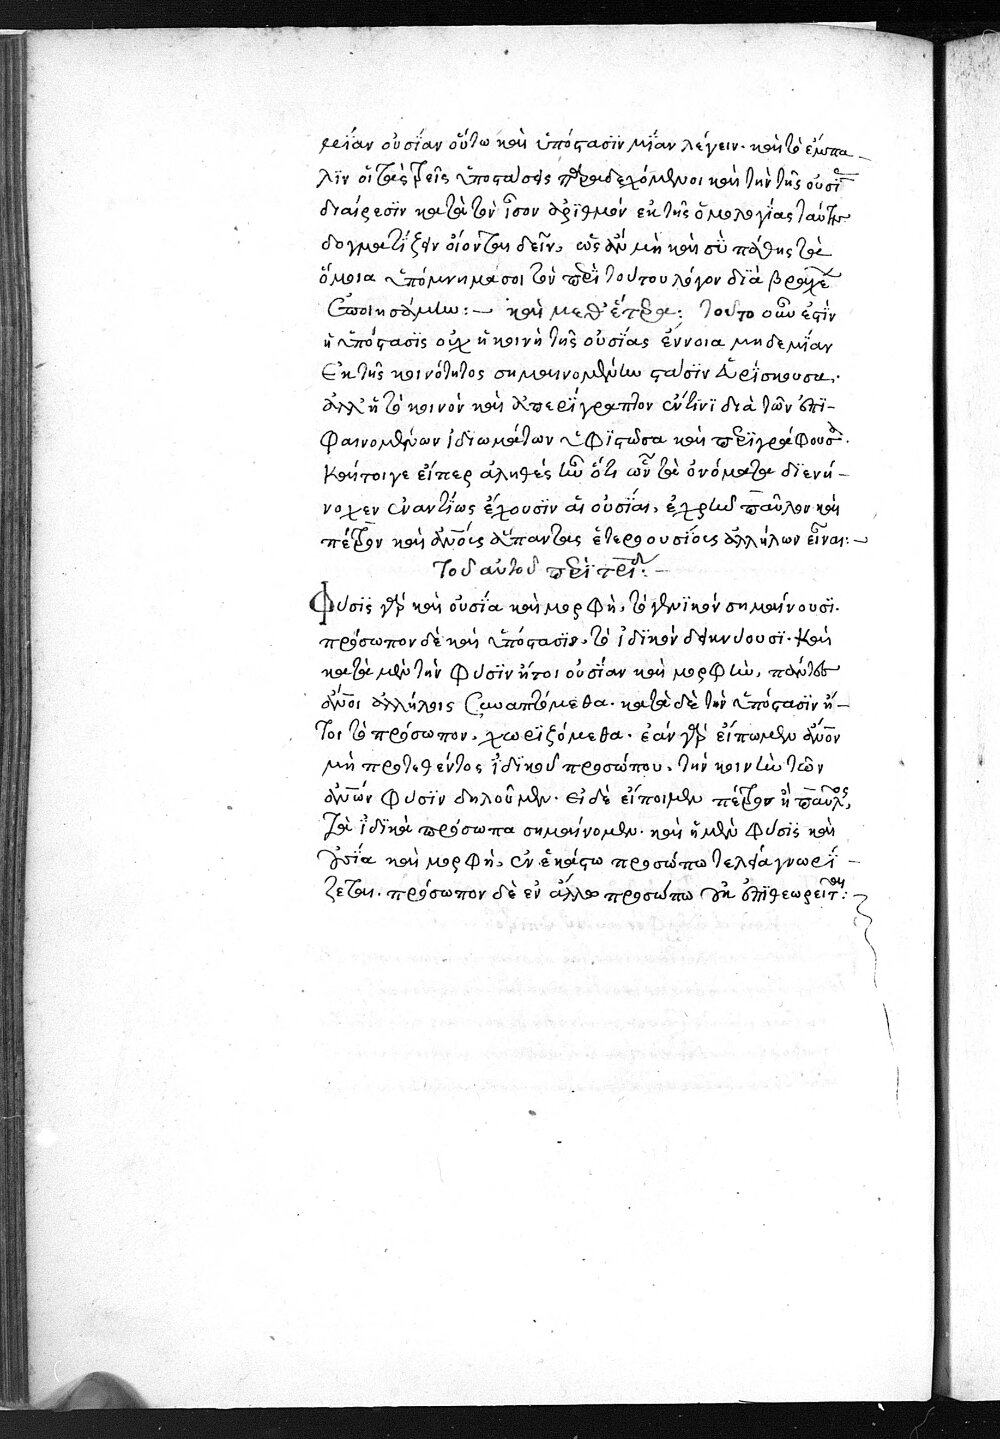 ρεῖαν οὐσίαν οὕτω καὶ ὑπόστασϊν μΐαν λέγειν· καὶ τὸ ἔμπα –
λϊν οἱ τὰς τρεῖς ὑποστάσεις παραδεχόμενοι καὶ τὴν τῆς οὐσΐ
διαίρεσϊν κατὰ τὸν ἴσον ἀρϊθμὸν ἐκ τῆς ὁμολογίας ταύτης
δογματίζειν οἴονται δεῖν, ὡς ἂν μὴ καὶ σὺ πάθης τὰ
ὅμοια ὑπόμνημά σοι τὸν περὶ τούτου λόγον διὰ βραχέ
ἐποιησάμην :– καὶ μεθ' ἕτερα: τοῦτο οὖν ἐστϊν
ἡ ὑπόστασϊς οὐχ ἡ κοινὴ τῆς οὐσίας ἔννοια μηδεμΐαν
ἐκ τῆς κοινότητος σημαινομένου στάσϊν εὑρίσκουσα,
ἀλλ' ἡ τὸ κοινὸν καὶ ἀπερΐγραπτον ἐν τινϊ διὰ τῶν ἐπι –
φαινομένων ἰδιωμάτων ὑφϊστῶσα καὶ περϊγράφουσα.
καίτοιγε εἴπερ ἀληθὲς ἦν ὅτι ὧν τὰ ὀνόματα διενή –
νοχεν ἐναντΐως ἔχουσϊν αἱ οὐσΐαι, ἐχρῆν παῦλον καὶ
πέτρον καὶ ἀνοις ἅπαντας ἑτεροουσίοις ἀλλήλων εἶναι :–
Τοῦ αὐτοῦ περὶ
Φύσϊς γὰρ καὶ οὐσΐα καὶ μορφὴ, τὸ γενϊκὸν σημαίνουσι.
πρόσωπον δὲ καὶ ὑπόστασϊς, τὸ ἰδϊκὸν δεικνύουσι· καὶ
κατὰ μὲν τὴν φύσϊν ἤτοι οὐσίαν καὶ μορφὴν, πάντες
ἄνοι ἀλλήλοις συναπτόμεθα· κατὰ δὲ τὴν ὑπόστασϊν ἤ –
τοι τὸ πρόσωπον, χωρϊζόμεθα· ἐὰν γὰρ εἴπωμεν ἄνον
μὴ προτεθέντος ἰδϊκοῦ προσώπου, τὴν κοινὴν τῶν
ἀνων φύσϊν δηλοῦμεν· εἰ δὲ εἴποιμεν πέτρον ἢ παῦλος,
τὰ ἰδϊκὰ πρόσωπα σημαίνομεν· καὶ ἡ μὲν φύσϊς καὶ
οὐσΐα καὶ μορφὴ, ἐν ἑκάστω προσώπω τελεία γνωρί –
ζεται· πρόσωπον δὲ ἐν ἄλλω προσώπω οὐκ ἐπϊθεωρεῖται :